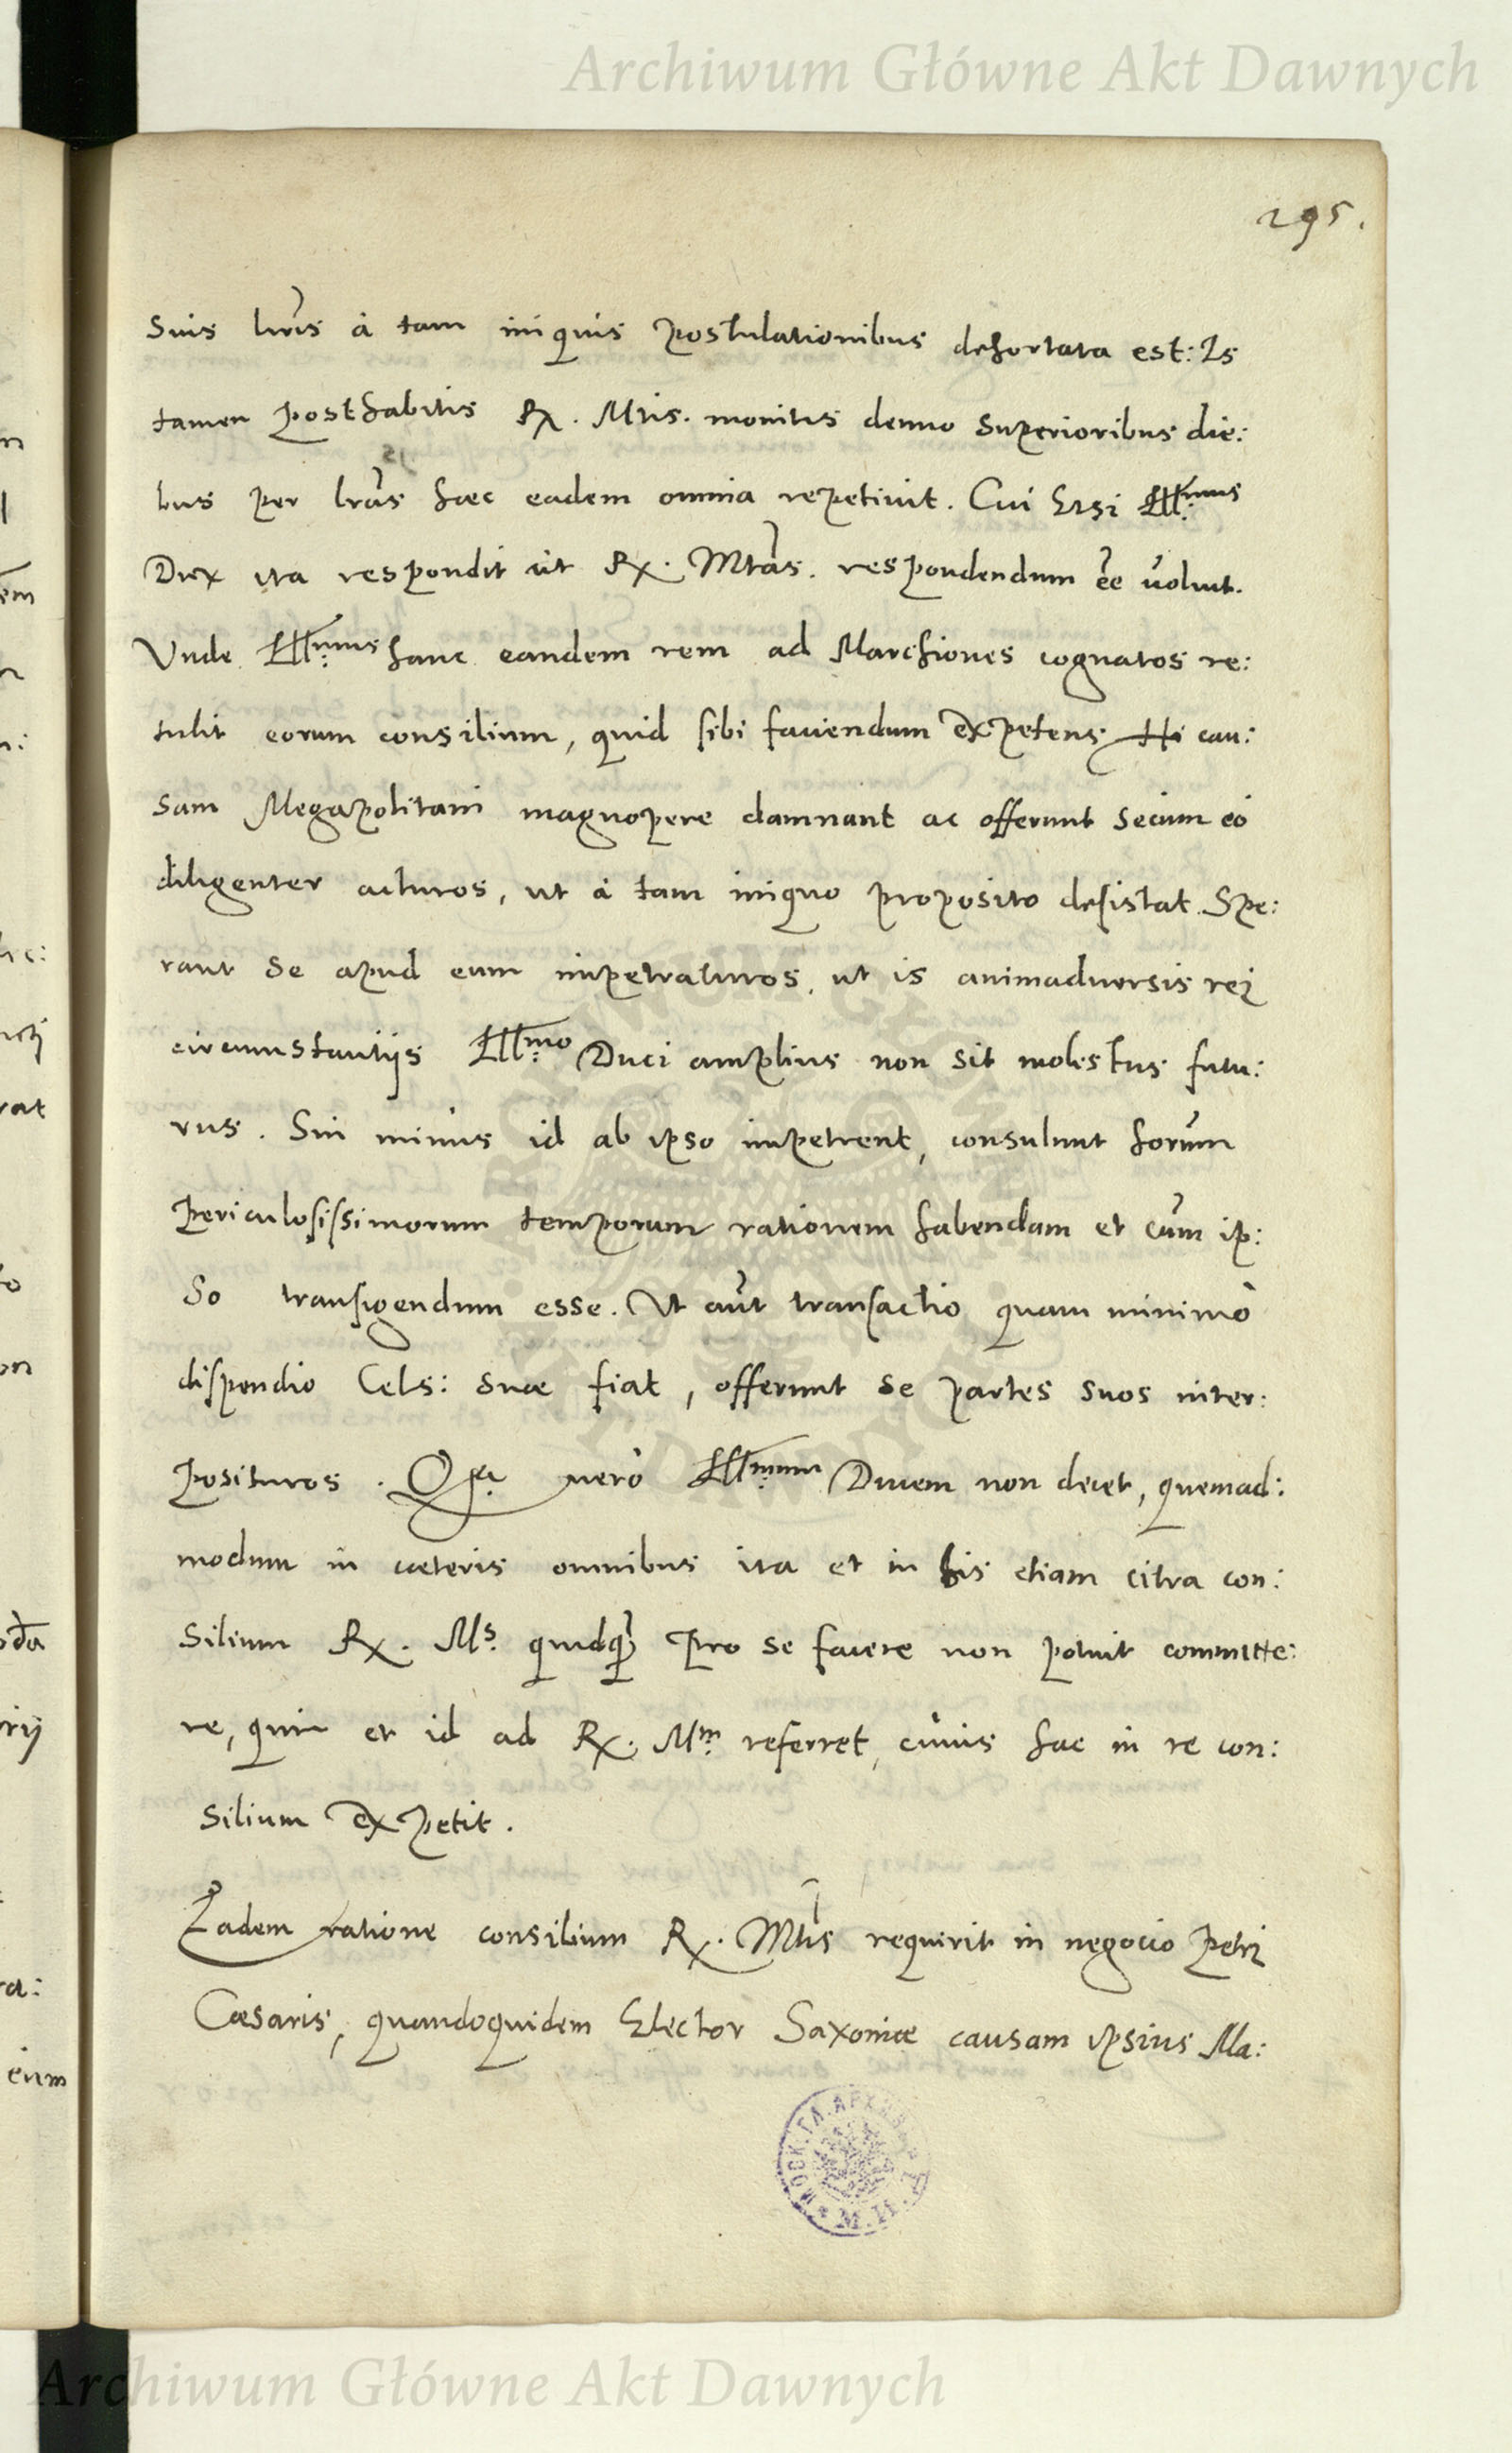 Archiwum Główne Akt Dawnych
295.
Suis lr̃is à tam iniquis postulationibus dehortata est: Is
tamen posthabitis Rx. Mtis. monitis denuo superioribus die:
bus per lrãs haec eadem omnia repetiuit. Cui Etsi Ill:mus
Dux ita respondit ut Rx. Mtas. respondendum ẽe uoluit.
Vnde Ill:mus hanc eandem rem ad Marchiones cognatos re:
tulit eorum consilium, quid sibi faciendum expetens Hi cau:
sam Megapolitani magnopere damnant ac offerunt secum eo
diligenter acturos, ut à tam iniquo proposito desistat. Spe:
rant se apud eum impetraturos, ut is animaduersis rei
circumstantijs Ill:mo Duci amplius non sit molestus futu:
rus. Sin minus id ab ipso impetrent, consulunt horum
periculosissimorum temporum rationem habendam et cum ip:
so transigendum esse. Ut aũt transactio quam minimo
dispendio Cels: suae fiat, offerunt se partes suos inter:
posituros. uero Ill:mum Ducem non decet, quemad:
modum in caeteris omnibus ita et in his etiam citra con:
silium Rx. Ms. quidq̃ pro se facere non potuit committe:
re, quin et id ad Rx. Mm. referret, cuius hac in re con:
silium expetit.
Eadem ratione consilium Rx. Mtis requirit in negocio Petri
Caesaris, quandoquidem Elector Saxoniae causam ipsius Ma:
Archiwum Główne Akt Dawnych